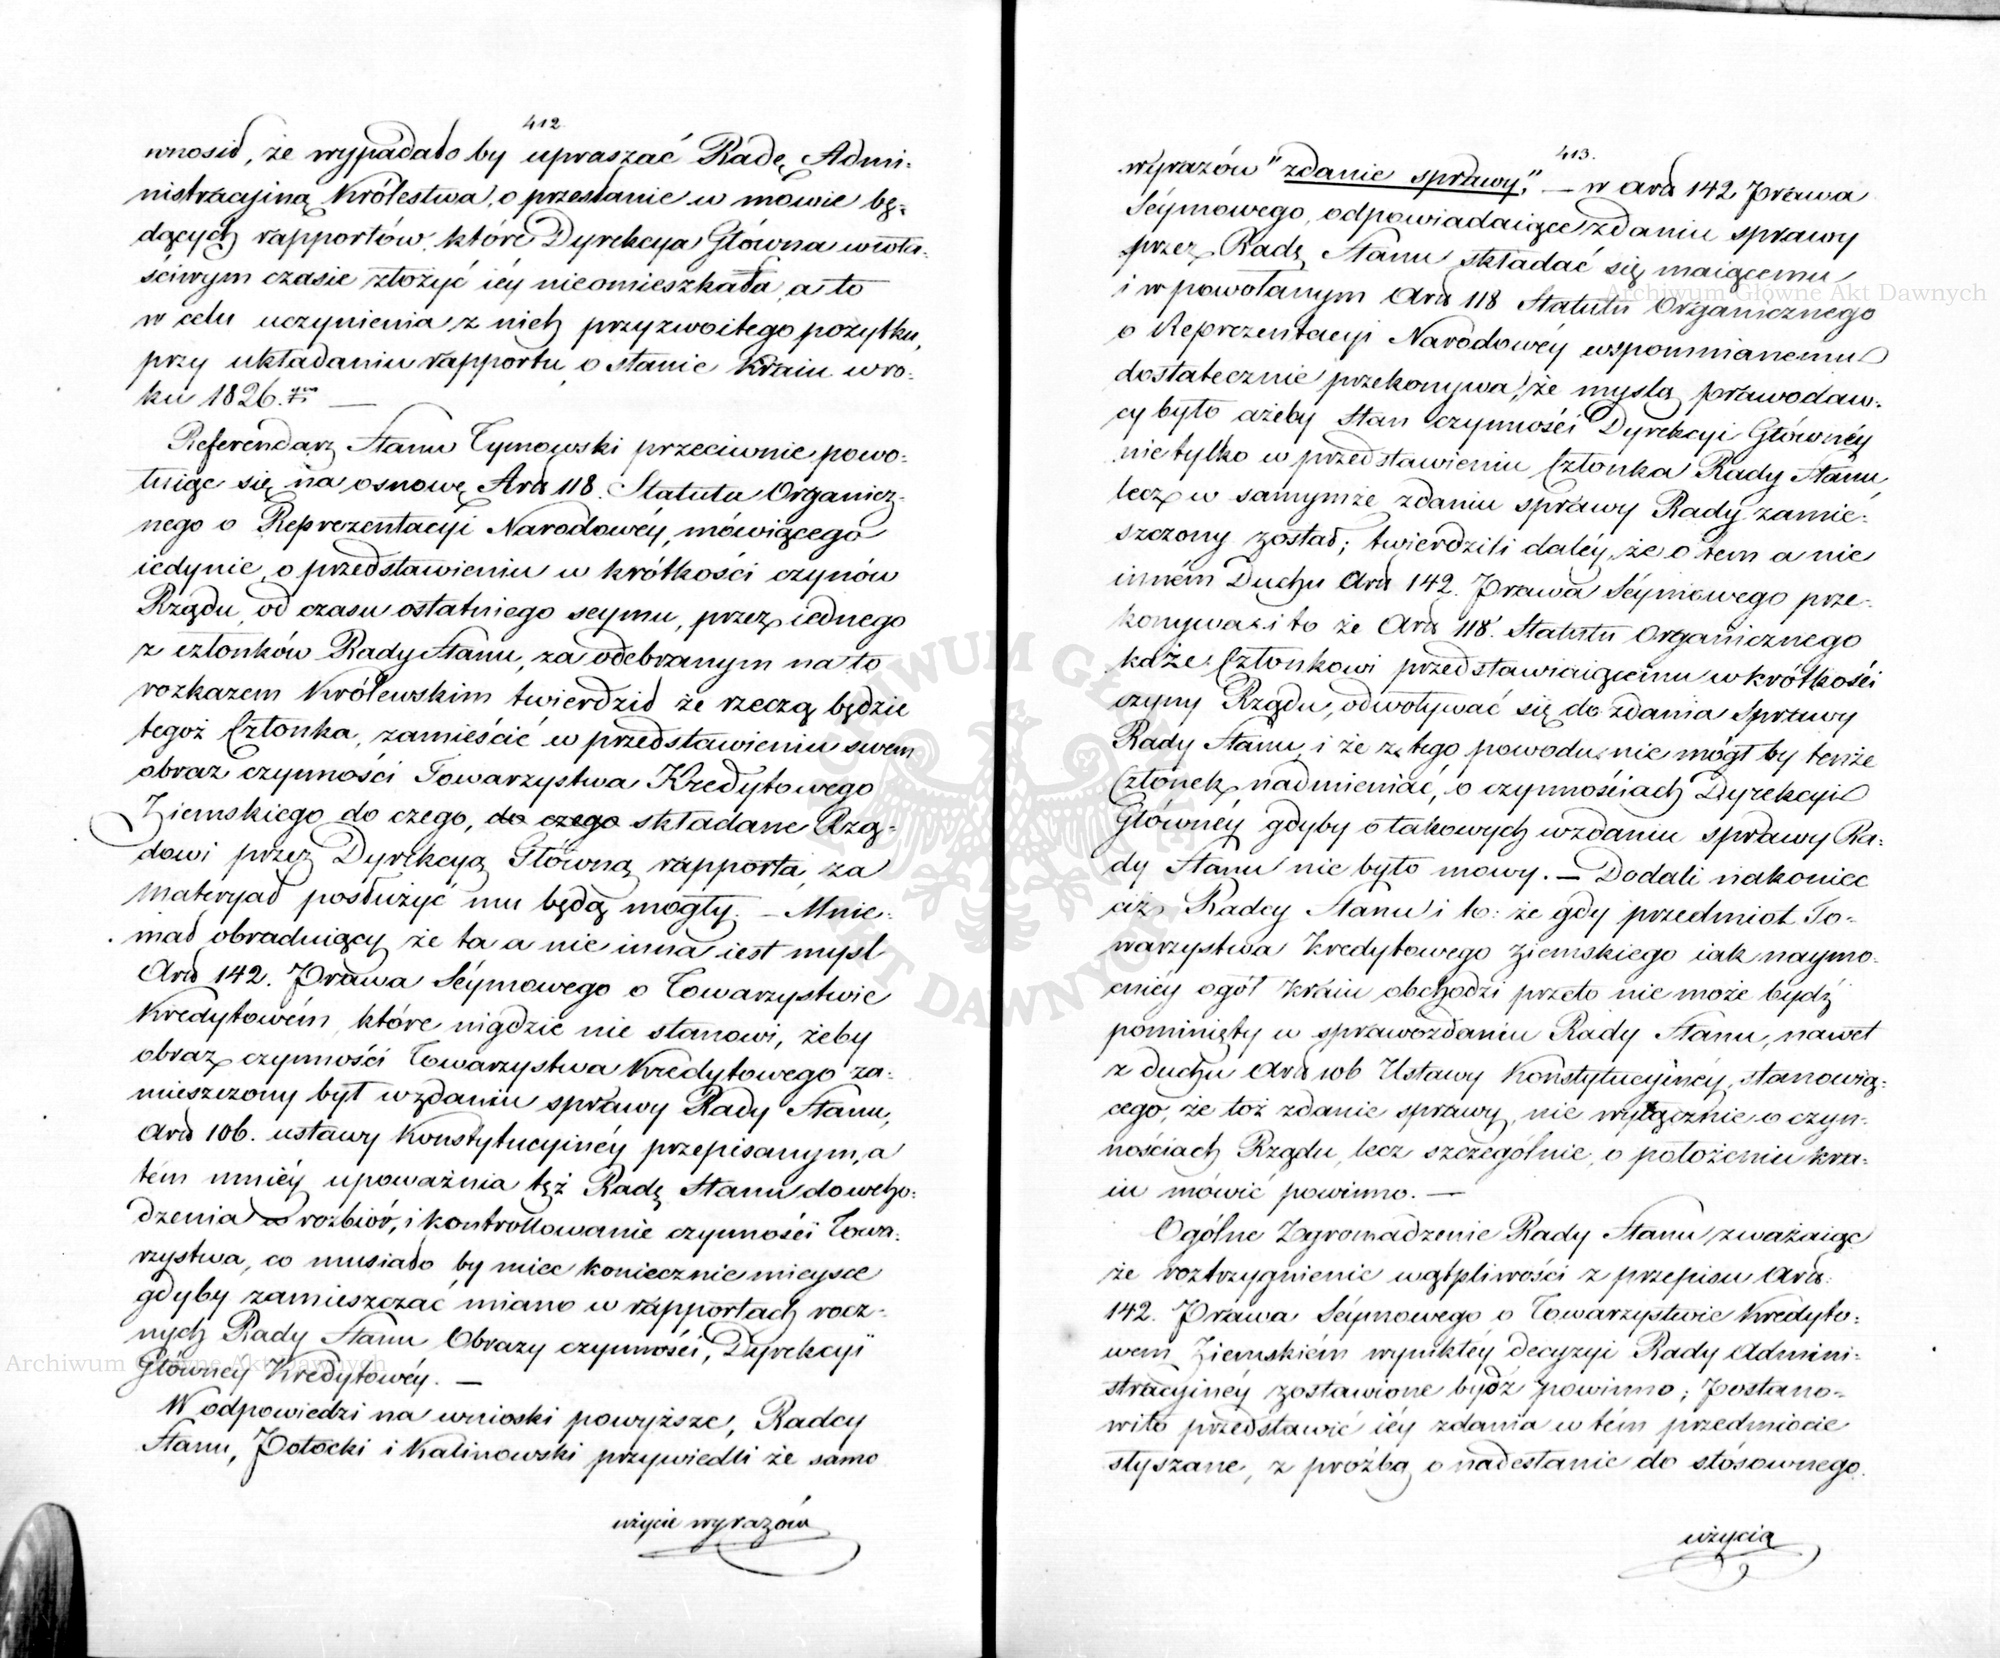 412.
wnosił, że wypadało by upraszać Radę Admi-
nistracyiną Królestwa, o przesłanie w mowie bę-
dących rapportów, które Dyrekcya Główna w wła-
ściwym czasie złożyć iéy nieomieszkała, a to
w celu uczynienia z nich przyzwoitego pożytku,
przy układaniu rapportu o stanie Kraiu w ro-
ku 1826.
Referendarz Stanu Tymowski przeciwnie powo-
łuiąc się na osnowę Art 118. Statutu Organicz-
nego o Reprezentacyi Narodowéy, mówiącego
iedynie, o przedstawieniu w krótkości czynów
Rządu, od czasu ostatniego seymu, przez iednego
z członków Rady Stanu, za odebranym na to
rozkazem Królewskim twierdził że rzeczą będzie
tegoż Członka, zamieścić w przedstawieniu swem
obraz czynności Towarzystwa Kredytowego
Ziemskiego do czego, do czego składane Rzą-
dowi przez Dyrekcyą Główną rapporta, za
materyał posłużyć mu będą mogły. — Mnie-
mał obraduiący że ta a nie inna iest myśl
Art 142. Prawa Séymowego o Towarzystwie
Kredytowém, które nigdzie nie stanowi, żeby
obraz czynności Towarzystwa Kredytowego za-
mieszczony był w zdaniu sprawy Rady Stanu,
Art 106. ustawy Konstytucyinéy przepisanym, a
tém mniéy upoważnia téż Radę Stanu do wcho-
dzenia w rozbiór, i kontrollowanie czynności Towa-
rzystwa, co musiało by mieć koniecznie mieysce
gdyby zamieszczać miano w rapportach rocz-
nych Rady Stanu Obrazy czynności, Dyrekcyi
Głównéy Kredytowéy. —
W odpowiedzi na wnioski powyższe, Radcy
Stanu, Potocki i Kalinowski przywiedli że samo
użycie wyrazów
413.
wyrazów "zdanie sprawy," — w Art 142 Prawa
Séymowego, odpowiadaiące zdaniu sprawy
przez Radę Stanu składać się maiącemu
i w powołanym Art 118 Statutu Organicznego
o Reprezentacyi Narodowéy wspomnianemu
dostatecznie przekonywa, że myślą prawodaw-
cy było ażeby Stan czynności Dyrekcyi Głównéy
nie tylko w przedstawieniu Członka Rady Stanu,
lecz w samymże zdaniu sprawy Rady zamie-
szczony został; twierdzili daléy, że o tem a nie
inném Duchu Art 142. Prawa Séymowego prze-
konywa i to że Art 118. Statutu Organicznego
każe Członkowi przedstawiaiącemu w krótkości
czyny Rządu, odwoływać się do zdania Sprawy
Rady Stanu, i że z tego powodu nie mógł by tenże
Członek nadmieniać, o czynnościach Dyrekcyi
Głównéy gdyby o takowych w zdaniu sprawy Ra-
dy Stanu nie było mowy. — Dodali nakoniec
ciż Radcy Stanu i to: że gdy przedmiot To-
warzystwa Kredytowego Ziemskiego iak naymo-
cniéy ogół Kraiu obchodzi przeto nie może bydź
pominięty w sprawozdaniu Rady Stanu, nawet
z duchu Art 106 Ustawy Konstytucyinéy, stanowią-
cego, że toż zdanie sprawy, nie wyłącznie o czyn-
nościach Rządu, lecz szczególnie, o położeniu kra-
iu mówić powinno. —
Ogólne Zgromadzenie Rady Stanu zważaiąc
że roztrzygnienie wątpliwości z przepisu Art.
142. Prawa Séymowego o Towarzystwie Kredyto-
wem Ziemskiém wynikłéy decyzyi Rady Admini-
stracyinéy zostawione bydź powinno; Postano-
wiło przedstawić iéy zdania w tém przedmiocie
słyszane, z prożbą o nadesłanie do stósownego
użycia
Archiwum Główne Akt Dawnych
Archiwum Główne Akt Dawnych
ARCHIWUM GŁÓWNE AKT DAWNYCH